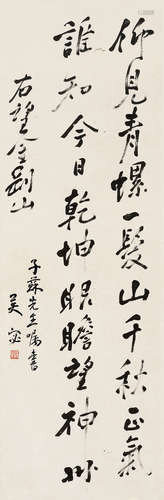 仰見青螺一髮山千秋正氣
誰知今日乾坤眼瞻望神州
右望金剛山
子蘇先生囑書
吴宓